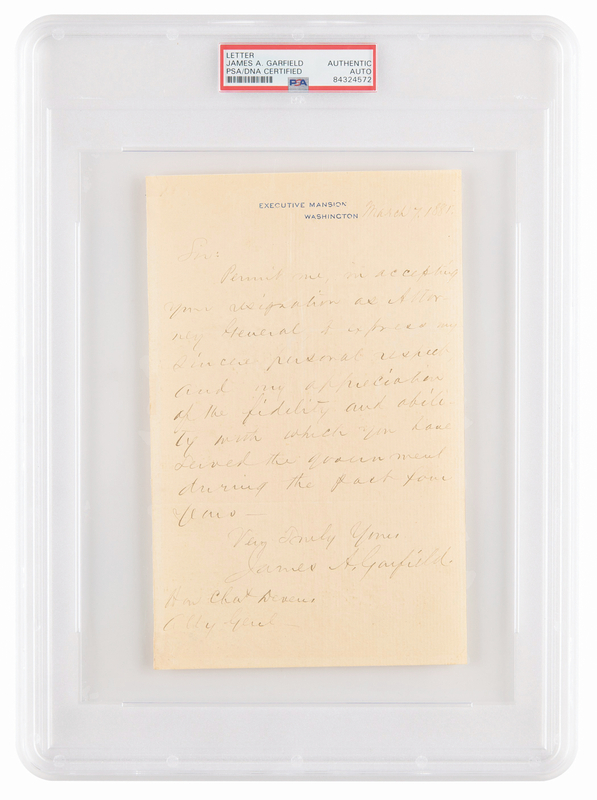 LETTER
JAMES A. GARFIELD AUTHENTIC
PSA/DNA CERTIFIED AUTO
84324572
PSA
EXECUTIVE MANSION
WASHINGTON March 7, 1881.
Sir:
Permit me, in accepting
your resignation as Attor-
ney General to express my
sincere personal respect
and my appreciation
of the fidelity and abili-
ty with which you have
served the government
during the past four
years—
Very Truly Yours
James A. Garfield.
Hon Chas Devens
Atty Genl—